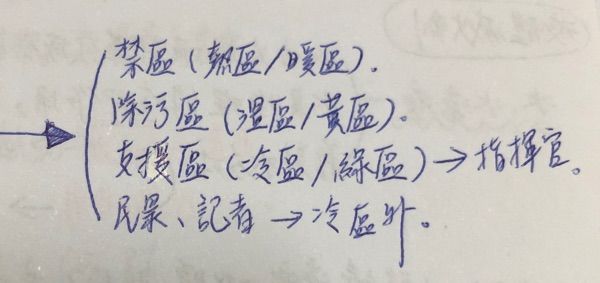 禁區(熱區/暖區).
除污區(溫區/黃區).
支援區(冷區/綠區)→指揮官。
民眾、記者→冷區外。